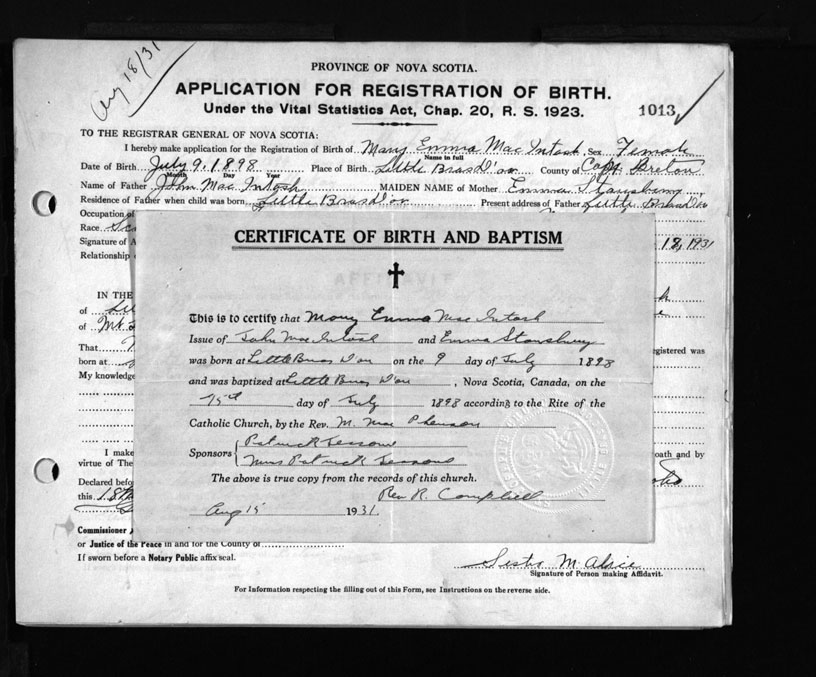 Aug 18/31
PROVINCE OF NOVA SCOTIA.
APPLICATION FOR REGISTRATION OF BIRTH.
Under the Vital Statistics Act, Chap. 20, R. S. 1923.
1013
TO THE REGISTRAR GENERAL OF NOVA SCOTIA:
I hereby make application for the Registration of Birth of Mary Emma Mac Intosh, Sex Female
Name in full
Date of Birth July 9, 1898 Place of Birth Little Bras D'or County of Cape Breton
Month Day Year
Name of Father John Mac Intosh MAIDEN NAME of Mother Emma
Residence of Father when child was born, Little Bras d'or Present address of Father Little Bras d'or
Occupation of
Race
Signature of A 18, 1931
Relationship
AFFIDAVIT
IN THE
of
of
That registered was
born at
My knowledge
I make oath and by
virtue of The
Declared befo
this 18th
Commissioner
or Justice of the Peace in and for the County of
If sworn before a Notary Public affix seal.
Sister M. Alice
Signature of Person making Affidavit.
For Information respecting the filling out of this Form, see Instructions on the reverse side.
CERTIFICATE OF BIRTH AND BAPTISM
This is to certify that Mary Emma Mac Intosh
Issue of John Mac Intosh and Emma Stansbury
was born at Little Bras D'or on the 9 day of July 1898
and was baptized at Little Bras D'or, Nova Scotia, Canada, on the
15th day of July 1898 according to the Rite of the
Catholic Church, by the Rev. M. Mac Pherson
Sponsors Patrick
Mrs Patrick
The above is true copy from the records of this church.
Rev. R. Campbell
Aug 15 1931.